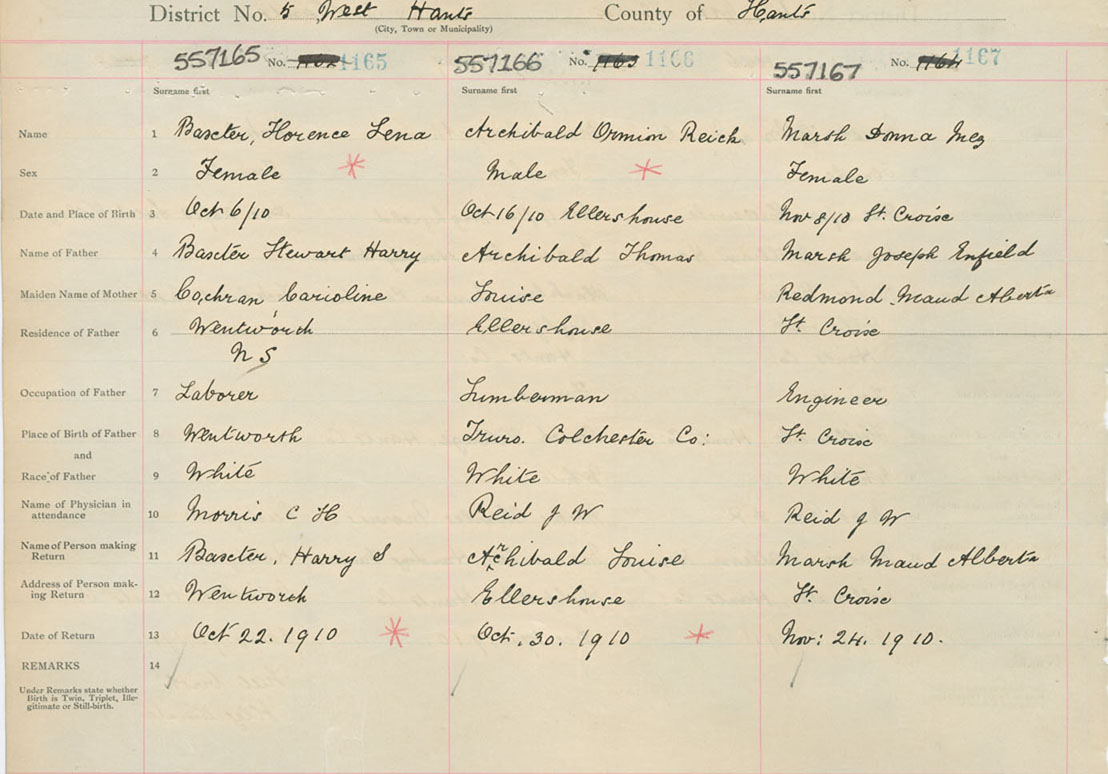 District No. 5 West Hants County of Hants
(City, Town or Municipality)
557165 No. 1165 557166 No. 1166 557167 No. 1167
Surname first Surname first Surname first
Name 1 Baxter, Florence Lena Archibald Ormion Reich Marsh Donna Inez
Sex 2 Female Male Female
Date and Place of Birth 3 Oct 6/10 Oct 16/10 Ellershouse Nov 8/10 St. Croix
Name of Father 4 Baxter Stewart Harry Archibald Thomas Marsh Joseph Enfield
Maiden Name of Mother 5 Cochran Carioline Louise Redmond Maud Alberta
Residence of Father 6 Wentworth Ellershouse St. Croix
N S
Occupation of Father 7 Laborer Lumberman Engineer
Place of Birth of Father 8 Wentworth Truro. Colchester Co: St. Croix
and
Race of Father 9 White White White
Name of Physician in
attendance 10 Morris C H Reid J W Reid J W
Name of Person making
Return 11 Baxter, Harry S Archibald Louise Marsh Maud Alberta
Address of Person mak-
ing Return 12 Wentworth Ellershouse St. Croix
Date of Return 13 Oct 22. 1910 Oct. 30. 1910 Nov: 24. 1910.
REMARKS 14
Under Remarks state whether
Birth is Twin, Triplet, Ille-
gitimate or Still-birth.